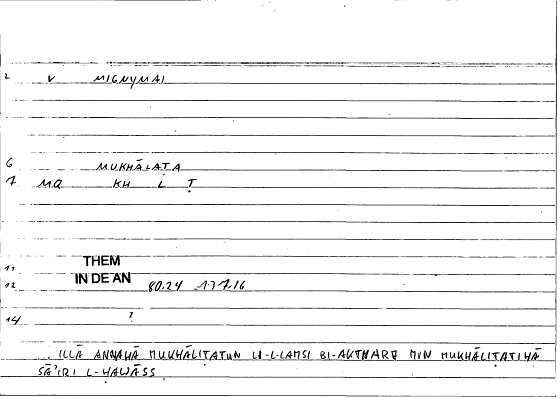 2 V MIGNYMAI
6 MUKHĀLAṬA
7 MQ KH L Ṭ
11 THEM
12 IN DE AN 80.24 137.16
14 ?
ILLĀ ANNAHĀ MUKHĀLIṬATUN LI-L-LAMSI BI-AKTHARA MIN MUKHĀLIṬATIHĀ
SĀ'IRI L-ḤAWĀSS